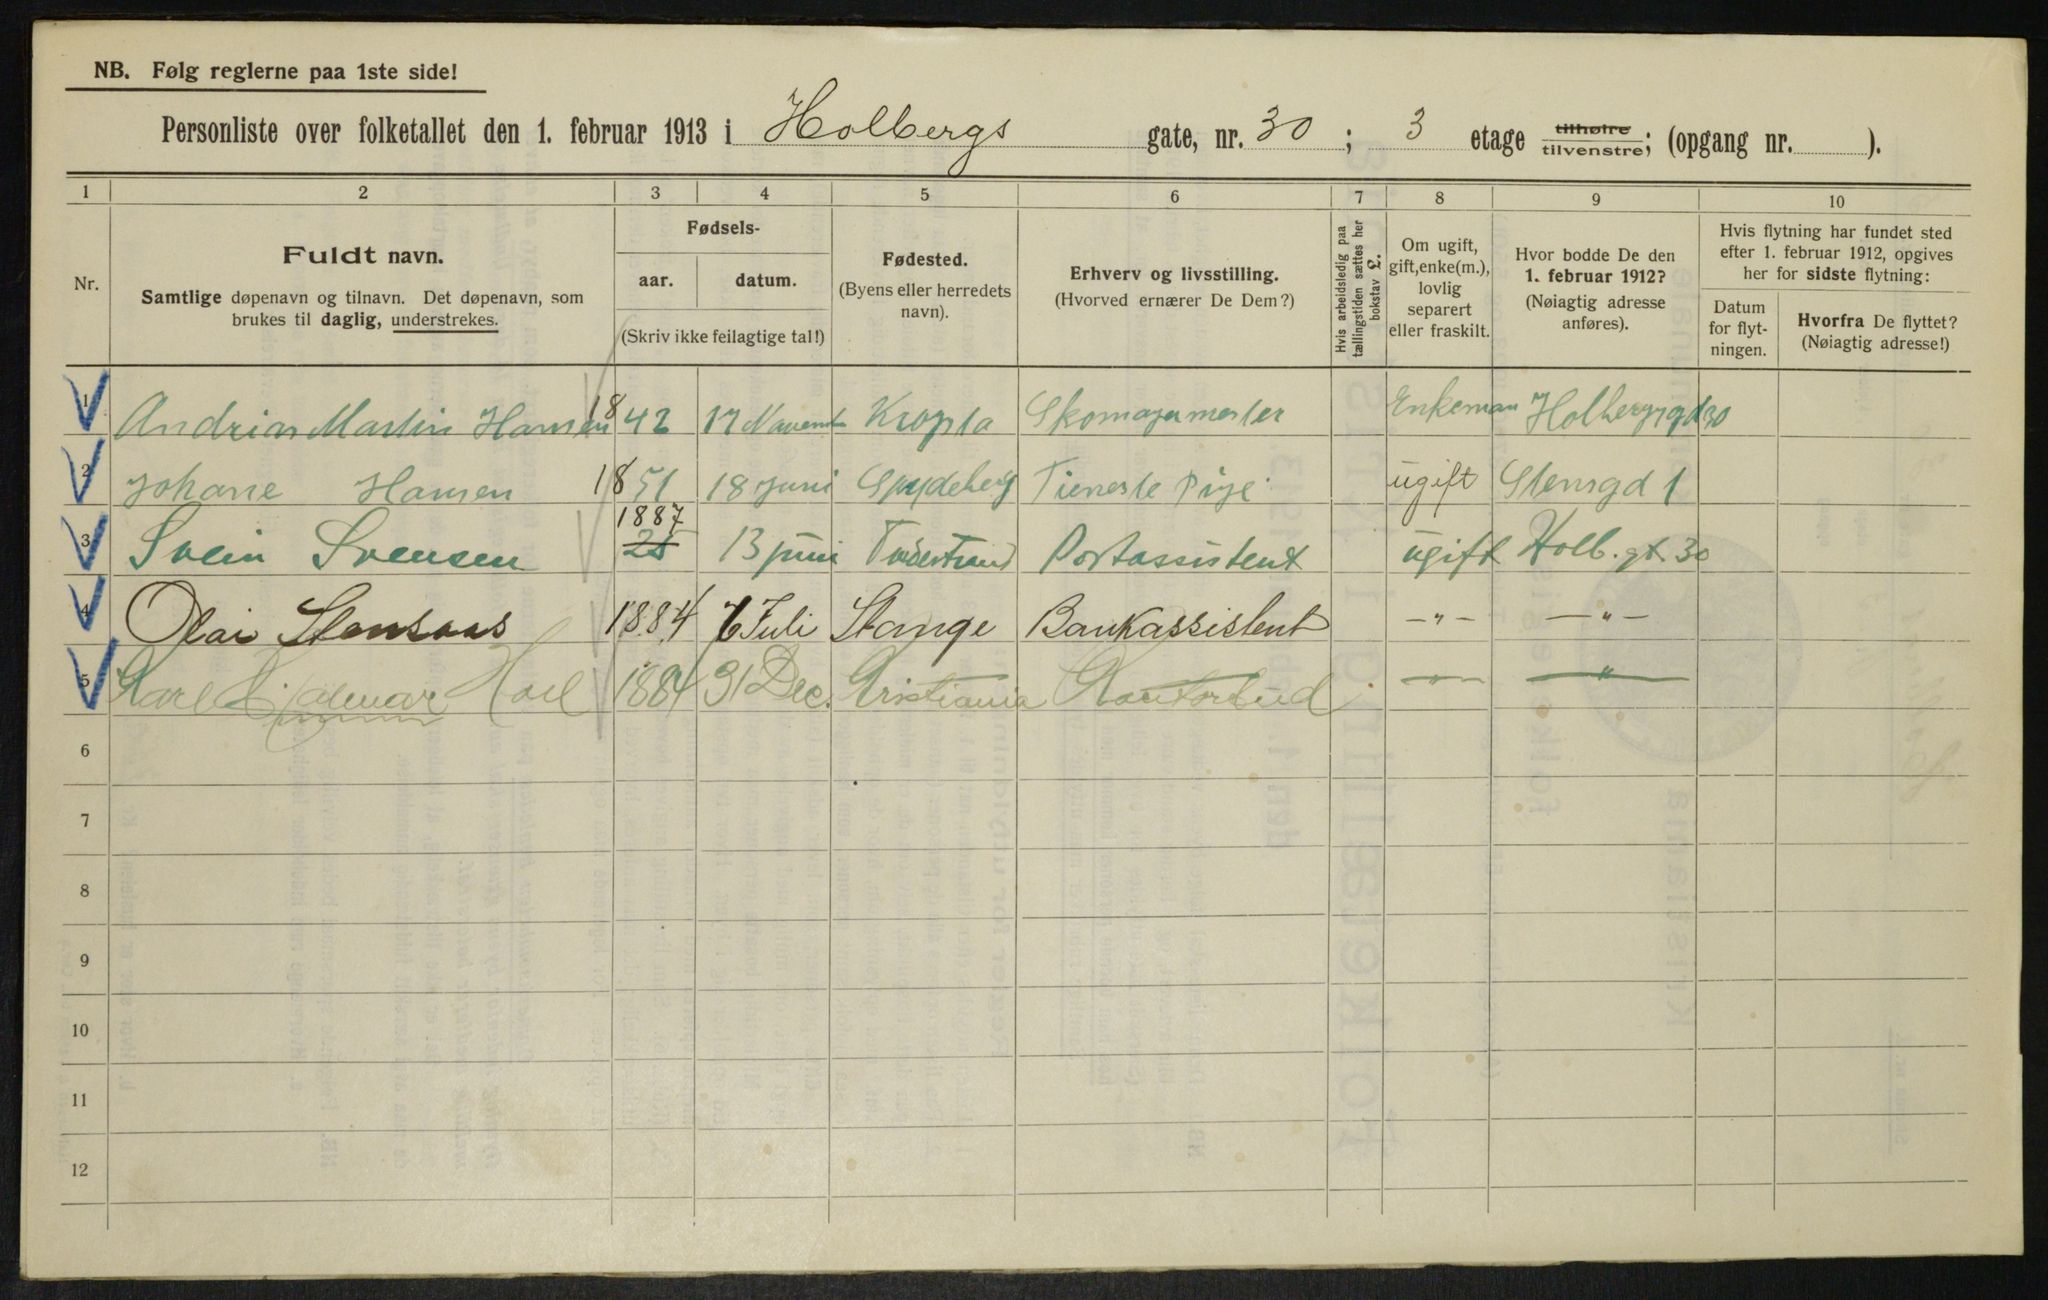 NB. Følg reglerne paa 1ste side!
Personliste over folketallet den 1. februar 1913 i Holbergs gate, nr. 30 ; 3 etage tilhøire tilvenstre; (opgang nr. ).
1 2 3 4 5 6 7 8 9 10
Nr.
Fuldt navn.
Samtlige døpenavn og tilnavn. Det døpenavn, som
brukes til daglig, understrekes.
Fødsels-
aar. datum.
(Skriv ikke feilagtige tal!)
Fødested.
(Byens eller herredets
navn).
Erhverv og livsstilling.
(Hvorved ernærer De Dem?)
Hvis arbeidsledig paa
tællingstiden sættes her
bokstav L.
Om ugift,
gift, enke(m.),
lovlig
separert
eller fraskilt.
Hvor bodde De den
1. februar 1912?
(Nøiagtig adresse
anføres).
Hvis flytning har fundet sted
efter 1. februar 1912, opgives
her for sidste flytning:
Datum
for flyt-
ningen.
Hvorfra De flyttet?
(Nøiagtig adresse!)
1 Andrias Martin Hansen 1842 17 Novemb Skomagermester Enkeman Holbergsgd 30
2 Johane Hansen 1851 18 juni Spydeberg Tieneste Pige ugift Stensgd 1
3 Svein Svensen 1887 25 13 juni Postassistent ugift Holb. gt. 30
4 Olai Stensaas 1884 7 Juli Stange Bankassistent -"- -"-
5 Karl Hjalmar Hoel 1884 31 Dec. Kristiania Kontorbud -"- -"-
6
7
8
9
10
11
12